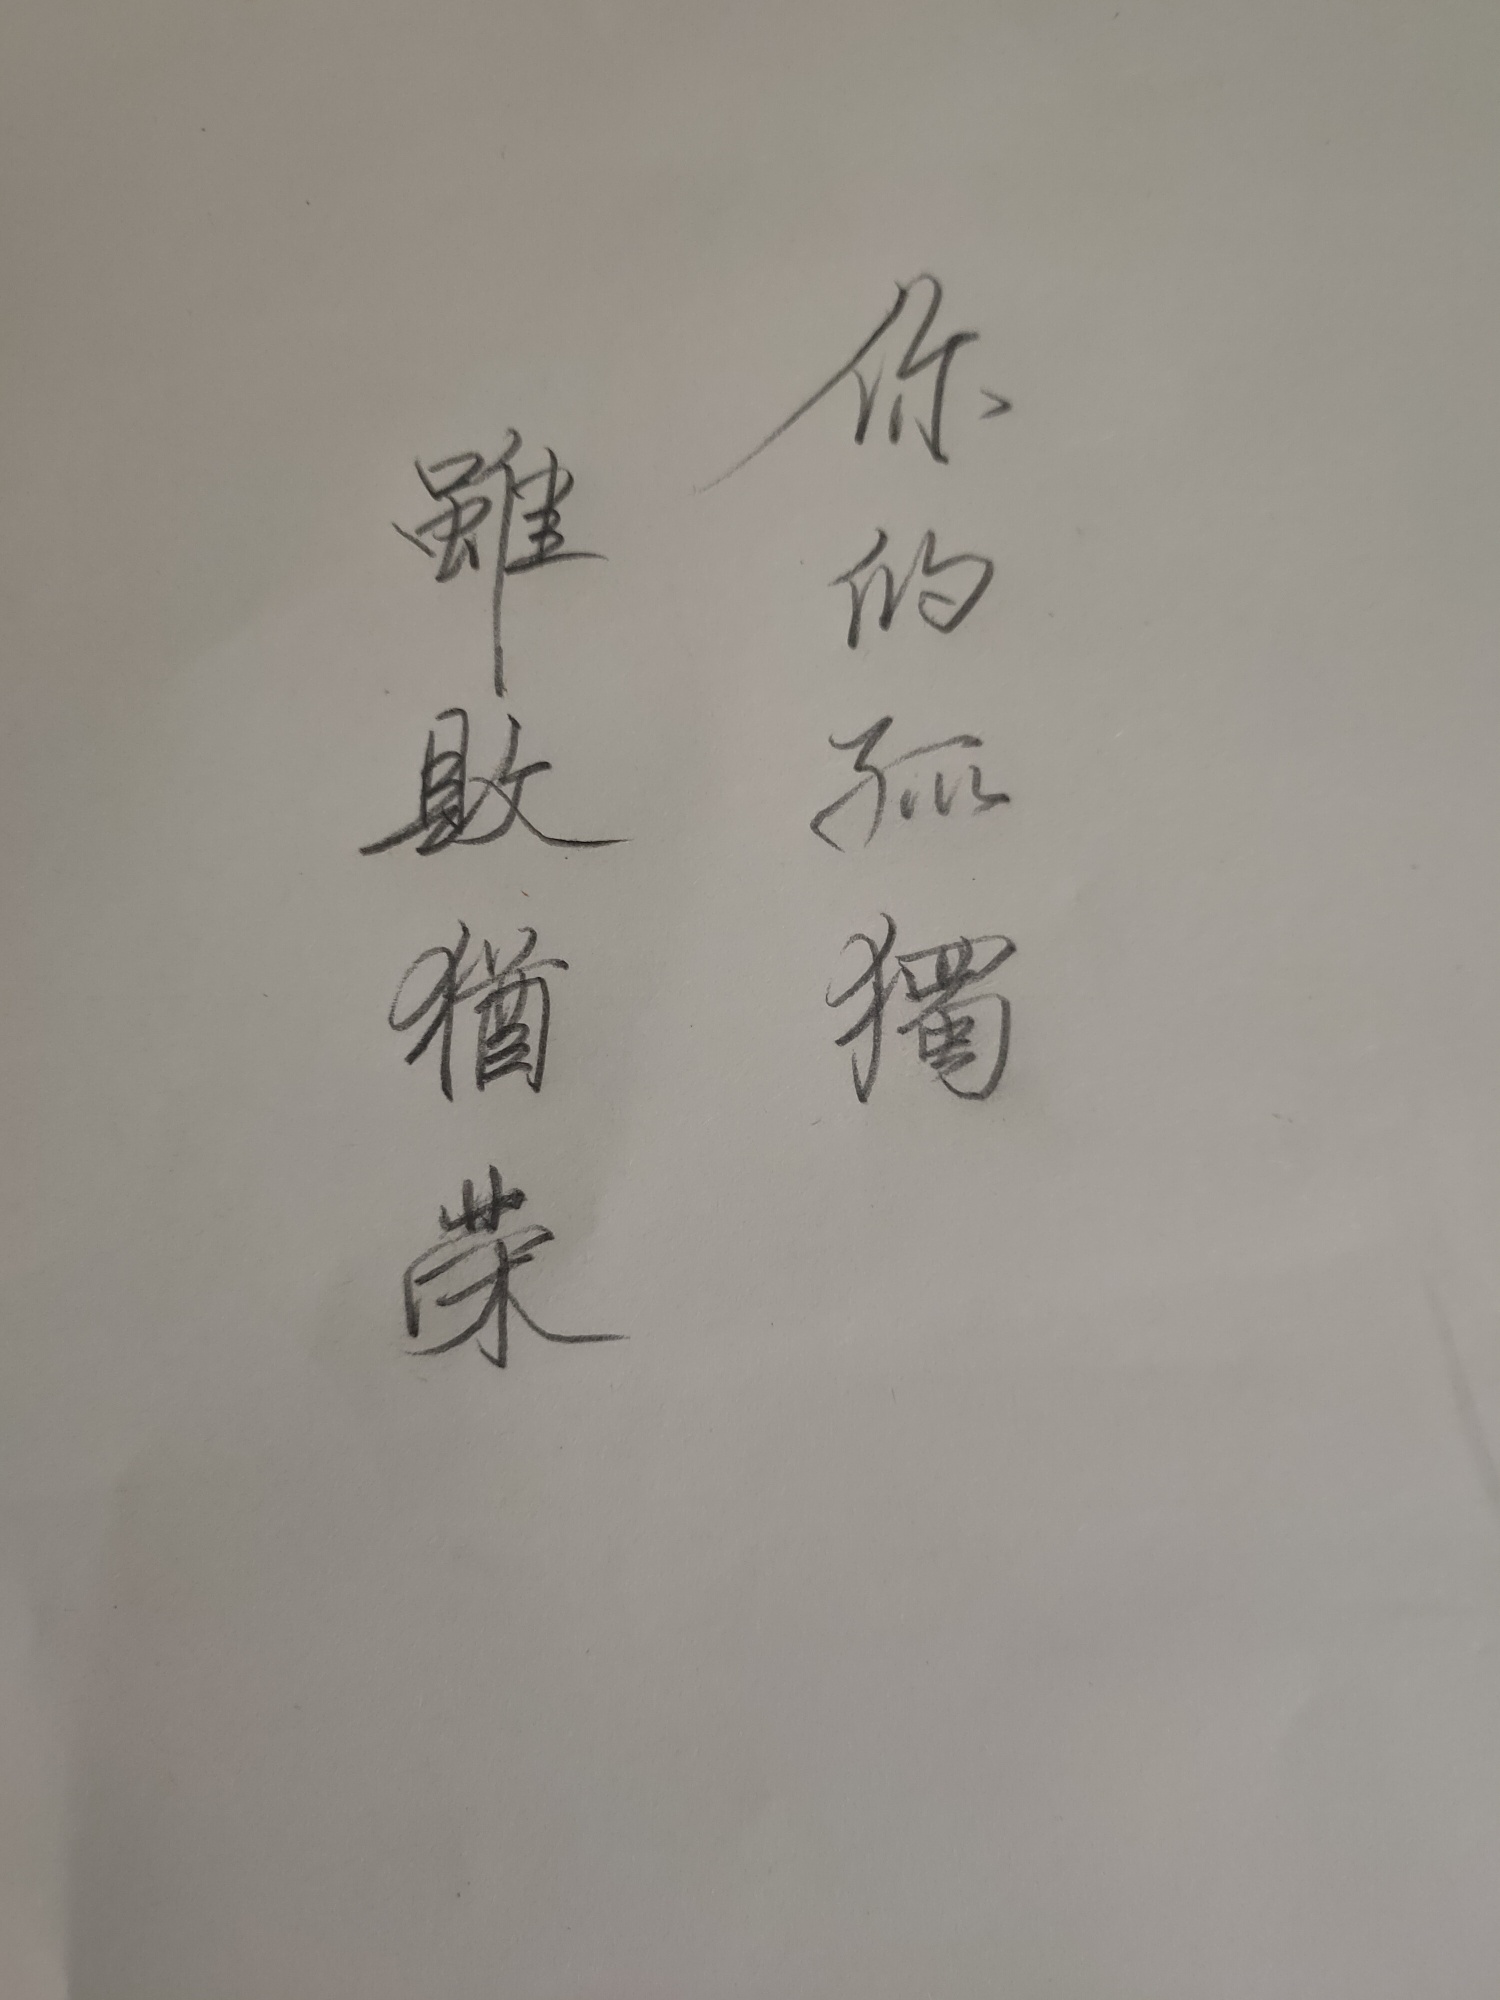 你的孤獨
雖敗猶荣